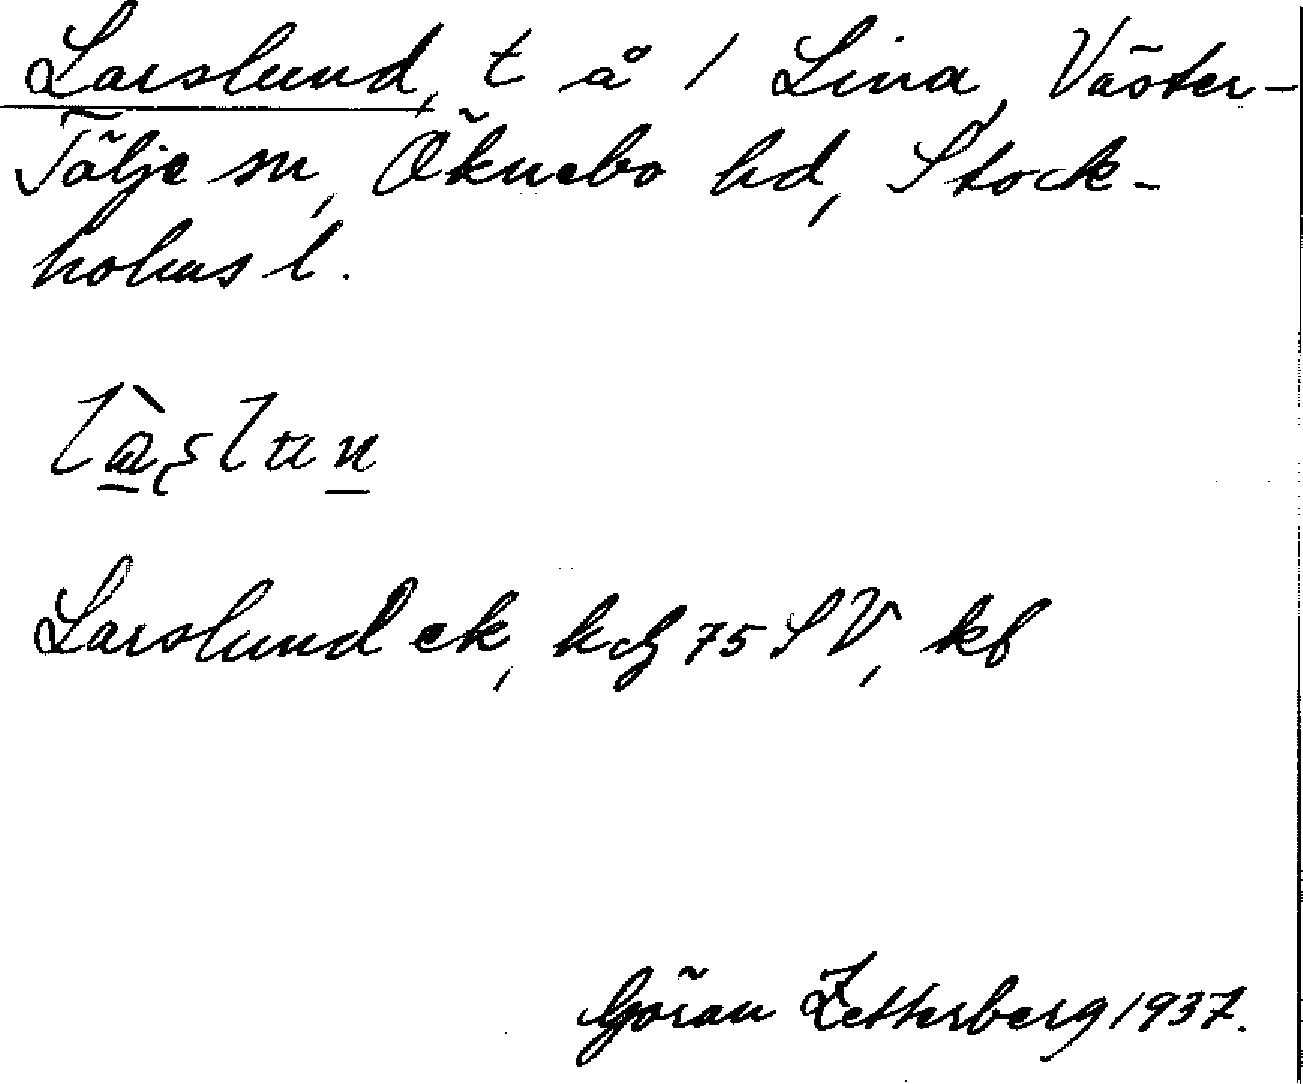 Larslund, t å 1 Lina, Väster-
Tälje sn, Öknebo hd, Stock-
holms l.
Larslund ek, kdj 75 SV, kf
Göran Zetterberg 1937.